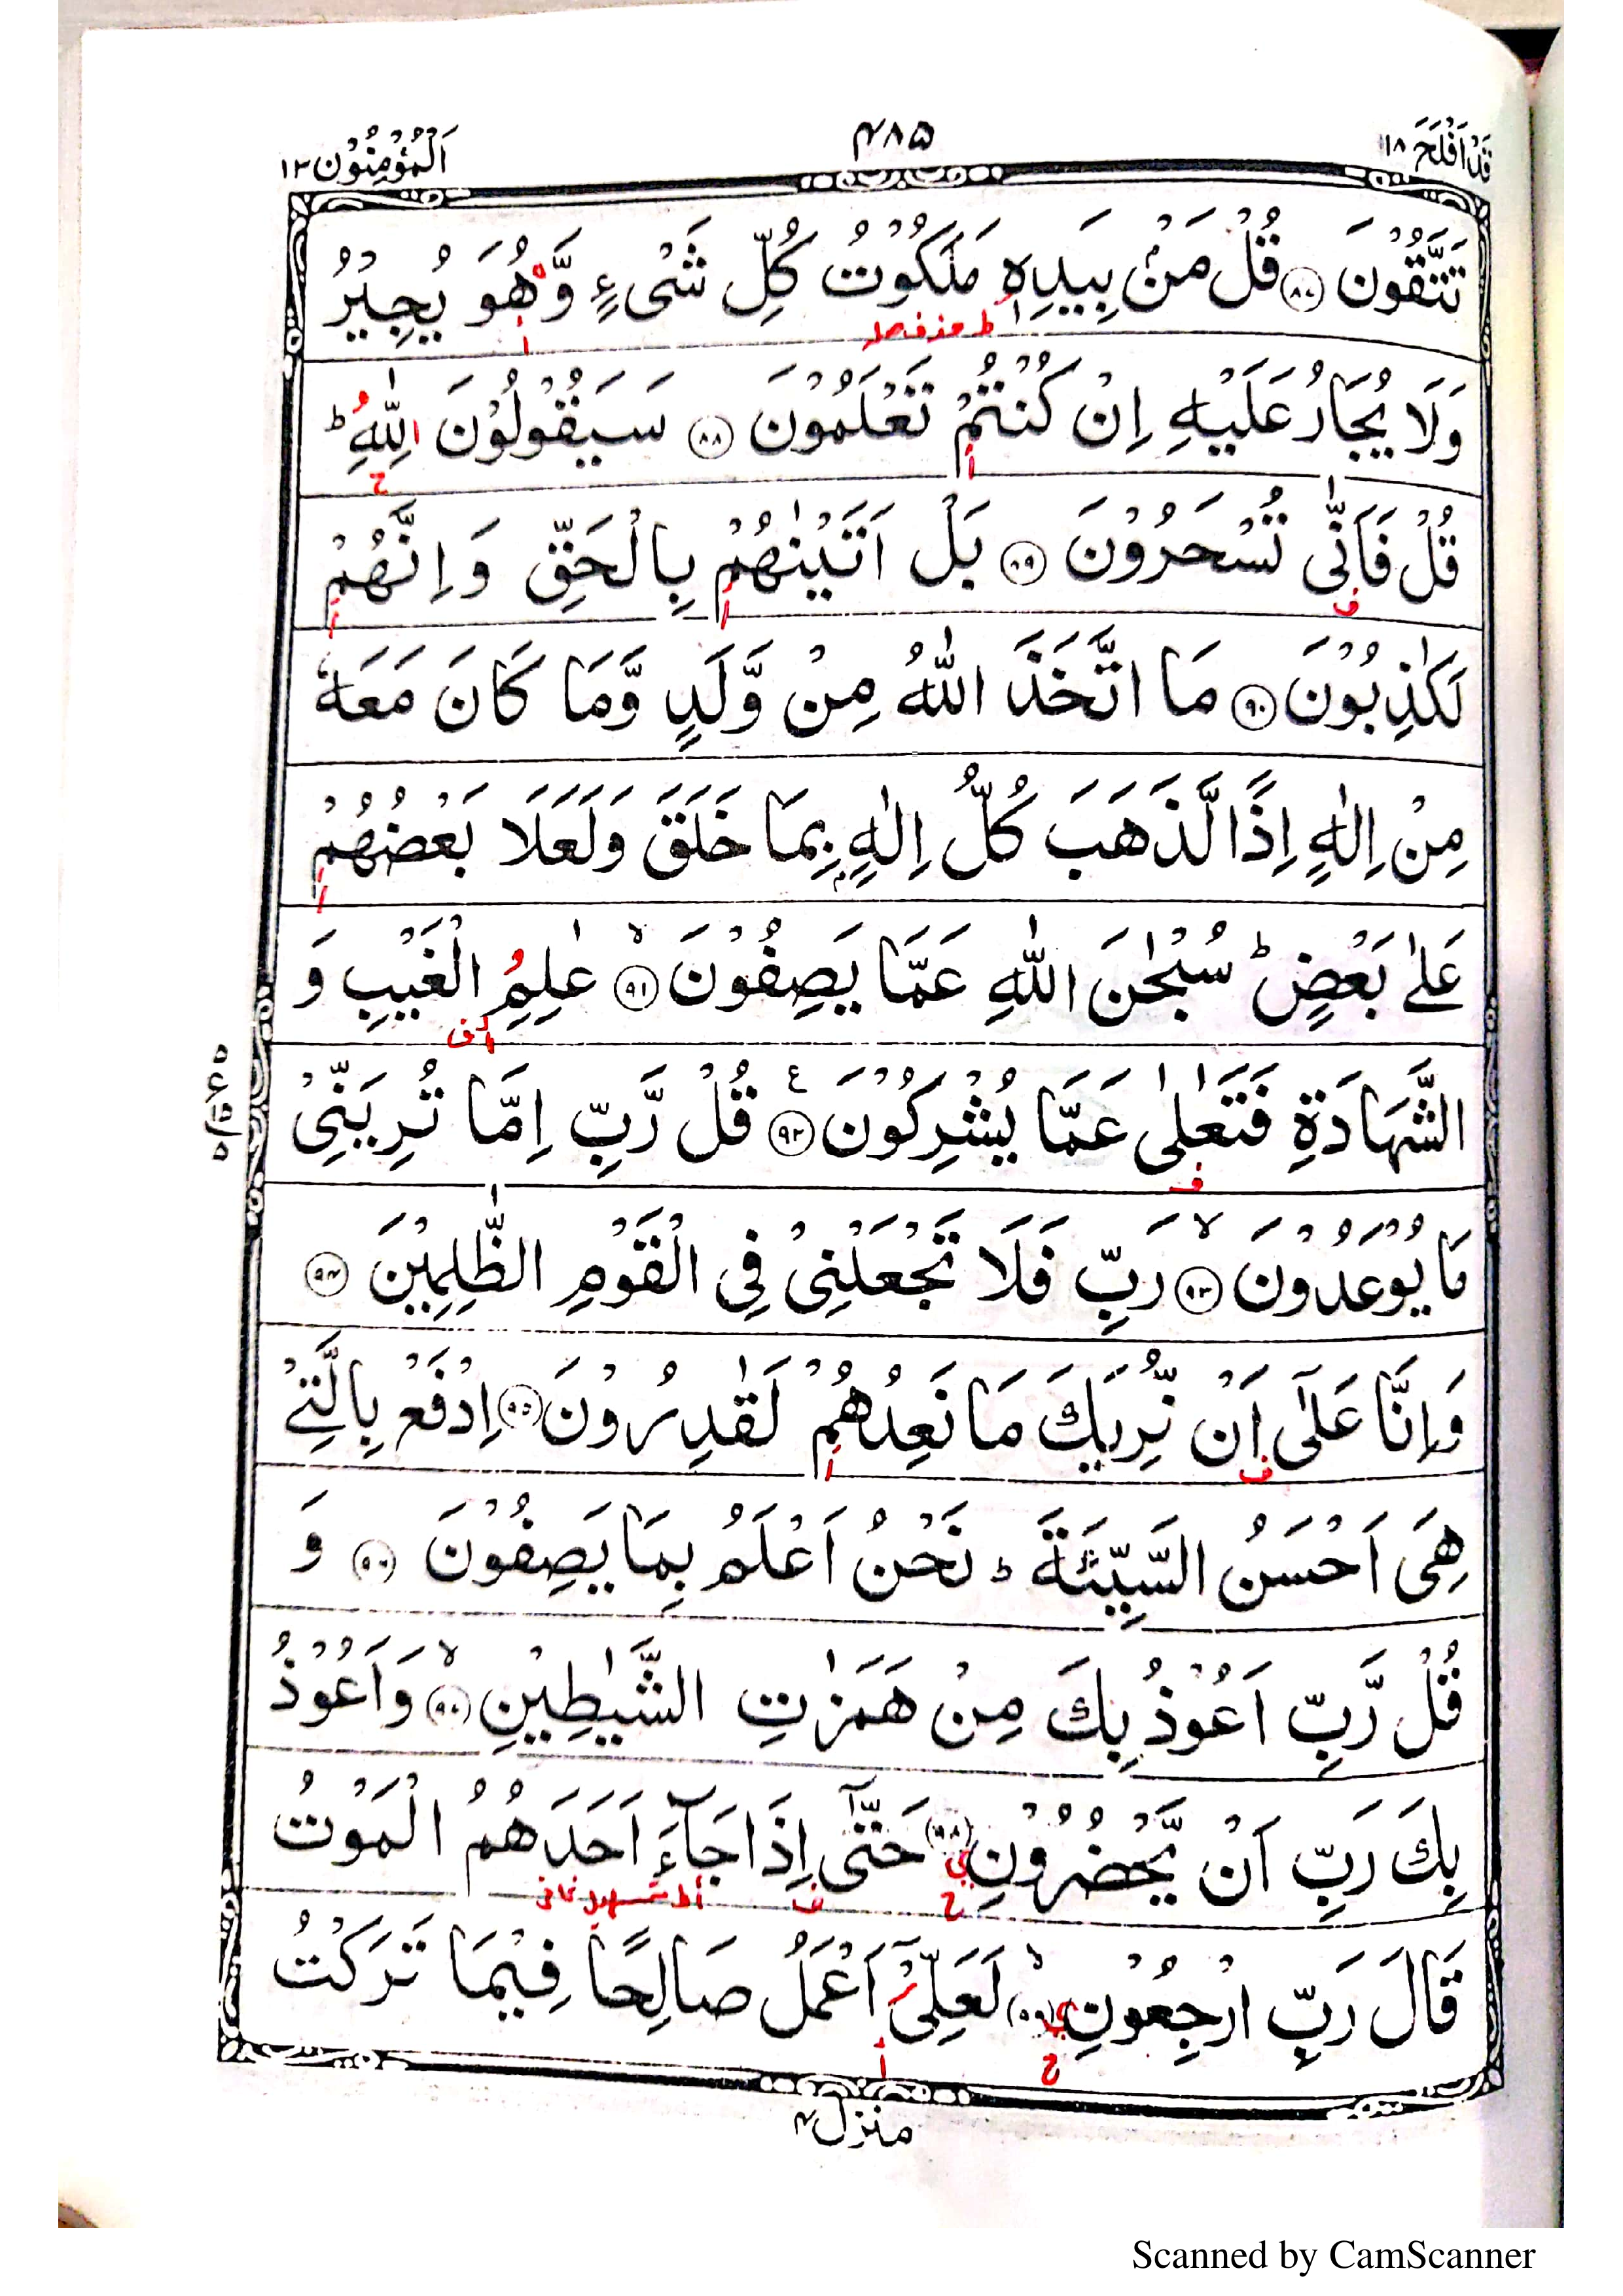 قَدْ اَفْلَحَ ١٨
٤٨٥
اَلْمُؤْمِنُوْن ٢٣
تَتَّقُوْنَ ۝٨٧ قُلْ مَنْۢ بِيَدِهٖ مَلَكُوْتُ كُلِّ شَیْءٍ وَّهُوَ يُجِيْرُ
ط حذف صله
وَلَا يُجَارُ عَلَيْهِ اِنْ كُنْتُمْ تَعْلَمُوْنَ ۝٨٨ سَيَقُوْلُوْنَ لِلّٰهِ ؕ
ح
قُلْ فَاَنّٰی تُسْحَرُوْنَ ۝٨٩ بَلْ اَتَيْنٰهُمْ بِالْحَقِّ وَاِنَّهُمْ
ف
لَكٰذِبُوْنَ ۝٩٠ مَا اتَّخَذَ اللّٰهُ مِنْ وَّلَدٍ وَّمَا كَانَ مَعَهٗ
مِنْ اِلٰهٍ اِذًا لَّذَهَبَ كُلُّ اِلٰهٍۭ بِمَا خَلَقَ وَلَعَلَا بَعْضُهُمْ
عَلٰی بَعْضٍ ؕ سُبْحٰنَ اللّٰهِ عَمَّا يَصِفُوْنَ ۝٩١ۙ عٰلِمِ الْغَيْبِ وَ
الشَّهَادَةِ فَتَعٰلٰی عَمَّا يُشْرِكُوْنَ ۝٩٢ ع قُلْ رَّبِّ اِمَّا تُرِيَنِّیْ
ف
مَا يُوْعَدُوْنَ ۝٩٣ۙ رَبِّ فَلَا تَجْعَلْنِیْ فِی الْقَوْمِ الظّٰلِمِيْنَ ۝٩٤
وَاِنَّا عَلٰۤی اَنْ نُّرِيَكَ مَا نَعِدُهُمْ لَقٰدِرُوْنَ ۝٩٥ اِدْفَعْ بِالَّتِیْ
ف
هِیَ اَحْسَنُ السَّيِّئَةَ ؕ نَحْنُ اَعْلَمُ بِمَا يَصِفُوْنَ ۝٩٦ وَ
قُلْ رَّبِّ اَعُوْذُ بِكَ مِنْ هَمَزٰتِ الشَّيٰطِيْنِ ۝٩٧ۙ وَاَعُوْذُ
بِكَ رَبِّ اَنْ يَّحْضُرُوْنِ ۝٩٨ حَتّٰۤی اِذَا جَآءَ اَحَدَهُمُ الْمَوْتُ
ح ف تسهيل ثانی
قَالَ رَبِّ ارْجِعُوْنِ ۝٩٩ۙ لَعَلِّیْۤ اَعْمَلُ صَالِحًا فِيْمَا تَرَكْتُ
ح
منزل ٤
Scanned by CamScanner